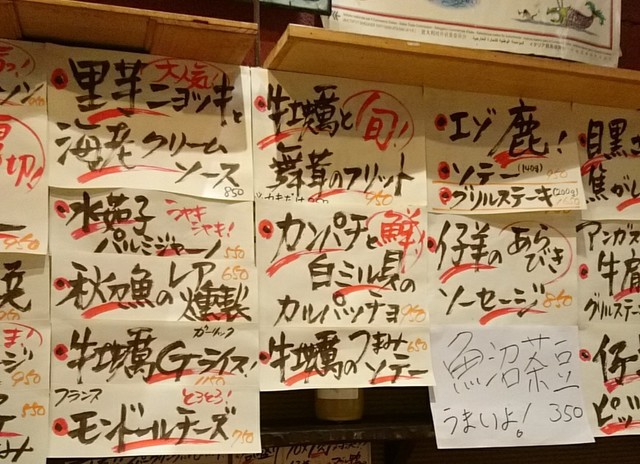 里芋ニョッキと
大人気!
海老クリーム
ソース
850
水茄子
シャキ
シャキ!
パルミジャーノ
550
秋刀魚のレア
燻製
650
牡蠣Gライス!
ガーリック
1150
フランス
とろとろ!
モンドールチーズ
750
牡蠣と
旬!
舞茸のフリット
950
カンパチと
鮮!
白ミル貝の
カルパッチョ
950
牡蠣のつまみ
ソテー
650
エゾ鹿!
ソテー(140g)
グリルステーキ(200g)
仔羊のあらびき
ソーセージ
850
魚沼茶豆
うまいよ!
350
切!
950
ジ!
950
550
目黒
焦が
アンガス
牛肩
グリルステー
仔
ピッ